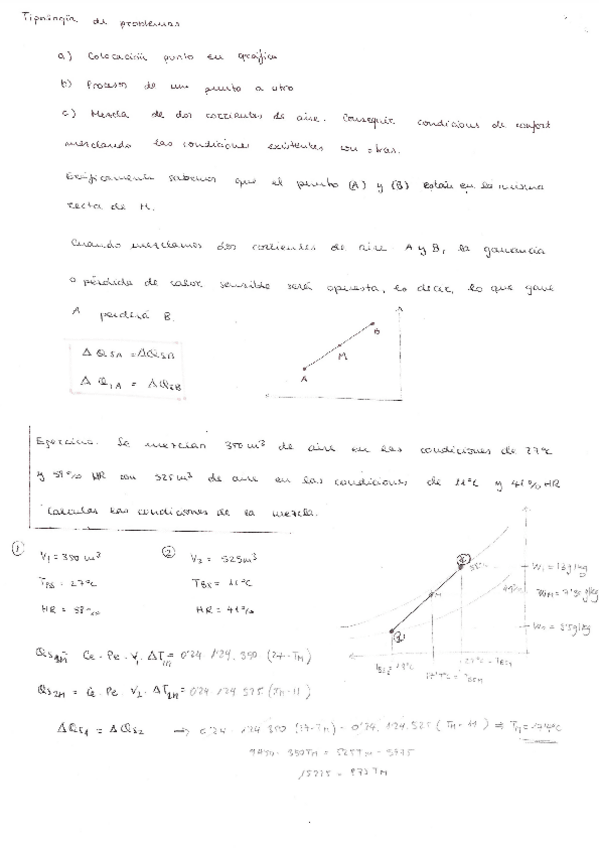 Tipología de problemas
a) Colocación punto en gráfica
b) Procesos de un punto a otro
c) Mezcla de dos corrientes de aire. Conseguir condiciones de confort
mezclando las condiciones existentes con otras.
Gráficamente sabemos que el punto (A) y (B) están en la misma
recta de M.
Cuando mezclamos dos corrientes de aire A y B, la ganancia
o pérdida de calor sensible será opuesta, es decir, lo que gane
A perderá B.
B
M
A
Δ QSA = ΔQSB
Δ QLA = ΔQLB
Ejercicio. Se mezclan 350 m³ de aire en las condiciones de 27ºC
y 58% HR con 525m³ de aire en las condiciones de 11ºC y 41% HR
Calcular las condiciones de la mezcla.
① V₁ = 350 m³
② V₂ = 525m³
TBS = 27ºC
TBS = 11ºC
HR = 58%
HR = 41%
M
W₁ = 13g/kg
QS1M = Ce · Pe · V₁ · ΔT = 0'24 · 1'24 · 350 (27-TM)
QS2M = Ce · Pe · V₂ · ΔT = 0'24 · 1'24 · 525 (TM-11)
ΔQS1 = ΔQS2 → 0'24 · 1'24 · 350 (27-TM) = 0'24 · 1'24 · 525 (TM-11) ⇒ TM = 17'4ºC
9450 - 350TM = 525TM - 5775
15225 = 875TM